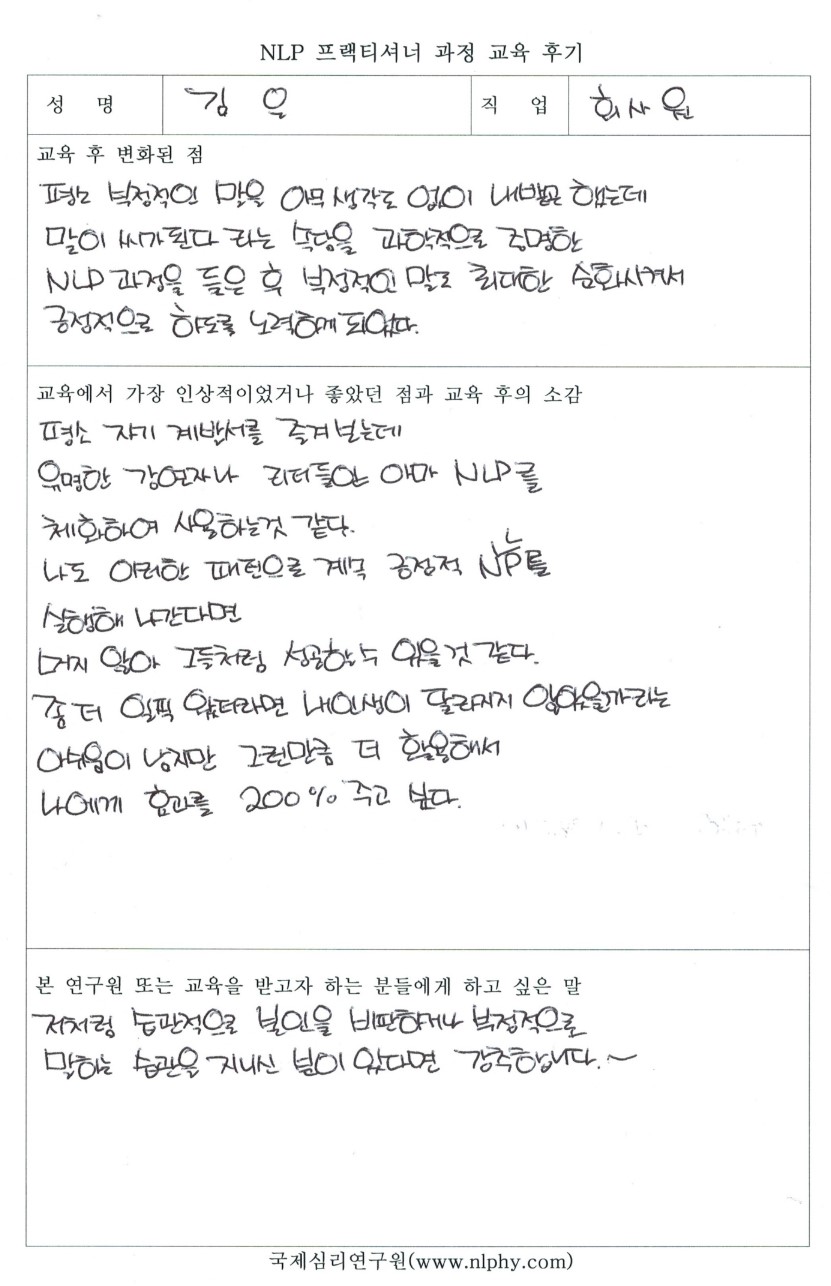 NLP 프랙티셔너 과정 교육 후기
성 명 김 직 업 회사원
교육 후 변화된 점
평소 부정적인 말을 아무 생각도 없이 내뱉곤 했는데
말이 씨가된다 라는 속담을 과학적으로 증명한
NLP 과정을 들은 후 부정적인 말도 최대한 순화시켜서
긍정적으로 하도록 노력하게 되었다.
교육에서 가장 인상적이었거나 좋았던 점과 교육 후의 소감
평소 자기 계발서를 즐겨 보는데
유명한 강연자나 리더들은 아마 NLP를
체화하여 사용하는것 같다.
나도 이러한 패턴으로 계속 긍정적 NLP를
실행해 나간다면
머지 않아 그들처럼 성공할수 있을것 같다.
좀 더 일찍 왔더라면 내인생이 달라지지 않았을까라는
아쉬움이 남지만 그런만큼 더 활용해서
나에게 효과를 200% 주고 싶다.
본 연구원 또는 교육을 받고자 하는 분들에게 하고 싶은 말
저처럼 습관적으로 본인을 비판하거나 부정적으로
말하는 습관을 지니신 분이 있다면 강추합니다.~
국제심리연구원(www.nlphy.com)